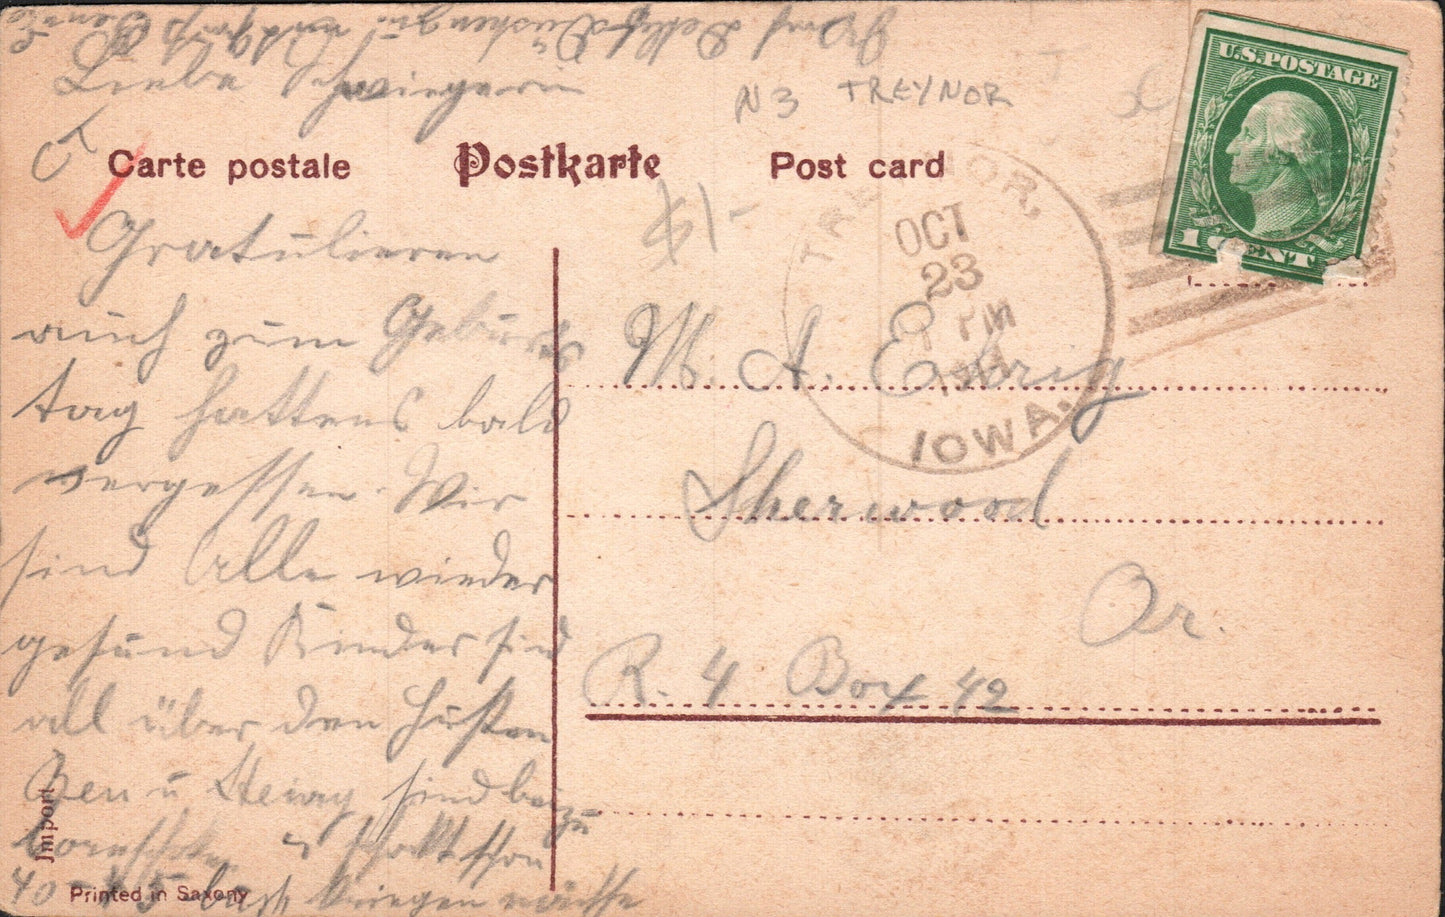 Liebe Schwiegerin
N 3 TREYNOR
Carte postale
Postkarte
Post card
U.S. POSTAGE
1 CENT
$1-
OCT
23
PM
IOWA.
Gratulieren
auch zum Geburts
tag hattens bald
vergessen. Wir
sind Alle wieder
gesund Kinder sind
all über den Husten
Ben u Henry sind bei zu
u schon
40 - 45 kriegen
M. A.
Sherwood
Or.
R. 4 Box 42
Import
Printed in Saxony